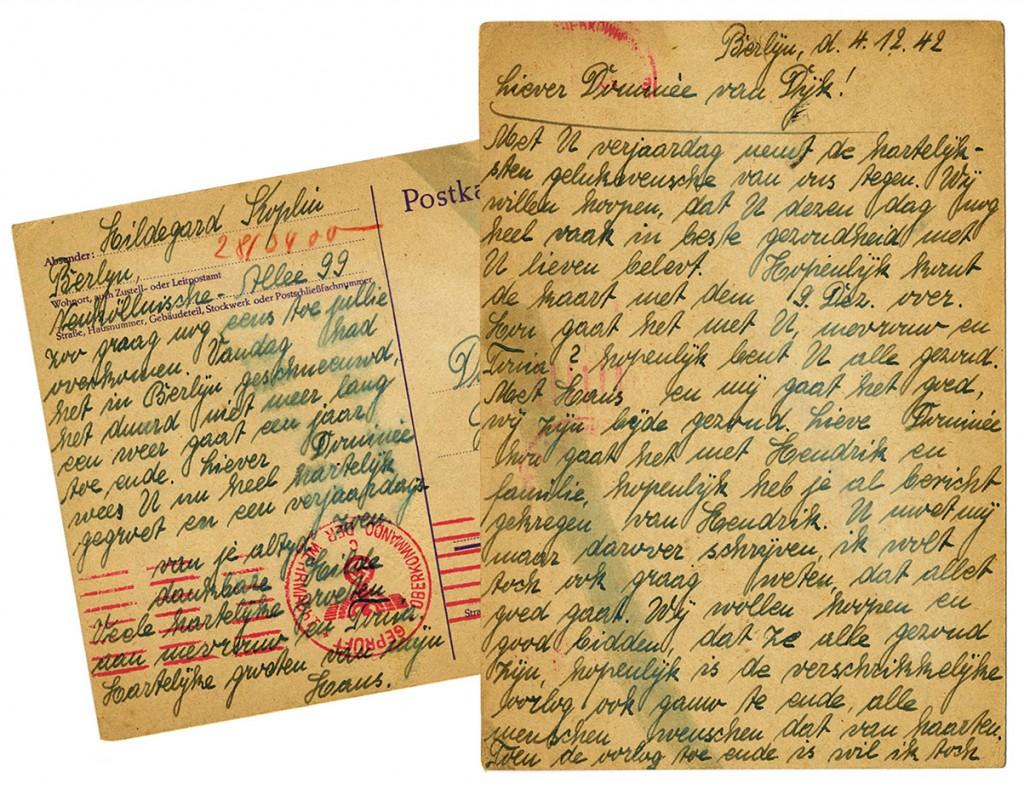 Berlijn, d. 4.12.42
Liever Dominée van Dijk!
Met U verjaardag nemt de hartelijk-
sten gelukwensche van ons tegen. Wij
willen hoopen, dat U dezen dag nog
heel vaak in beste gezondheid met
U lieven belevt. Hopenlijk komt
de kaart met dem 19. Dez. over.
Hou gaat het met U, mevrouw en
Tinia? hopenlijk bent U alle gezond.
Met Hans en mij gaat het goed,
wij zijn bijde gezond. Lieve Dominée
hou gaat het met Hendrik en
familie, hopenlijk heb je al bericht
gekregen van Hendrik. U moet mij
maar darover schrijven, ik wolt
toch ook graag weten, dat allet
goed gaat. Wij wollen hoopen en
good bidden, dat ze alle gezond
zijn, hopenlijk is de verschrikkelijke
vorlog ook gauw te ende, alle
menschen wenschen dat van haarten.
Toen de vorlog toe ende is wil ik toch
Postka
Absender: Hildegard Koplin
28/0400
Berlijn,
Wohnort, auch Zustell- oder Leitpostamt
Neuköllnische-Allee 99
Straße, Hausnummer, Gebäudeteil, Stockwerk oder Postschließfachnummer
zoo graag nog eens toe jullie
overkomen. Vandaag had
het in Berlijn geschneeuwd,
het duurd niet meer lang
een weer gaat een jaar
toe ende. Liever Dominée
wees U nu heel hartelijk
gegroet en een verjaardags-
zoen
van je altyd
dankbare Hilde
Veele hartelijke groetten
aan mevrouw en Tinia,
Hartelijke grooten van mijn
Hans.
OBERKOMMANDO DER WEHRMACHT
GEPRÜFT
Stra